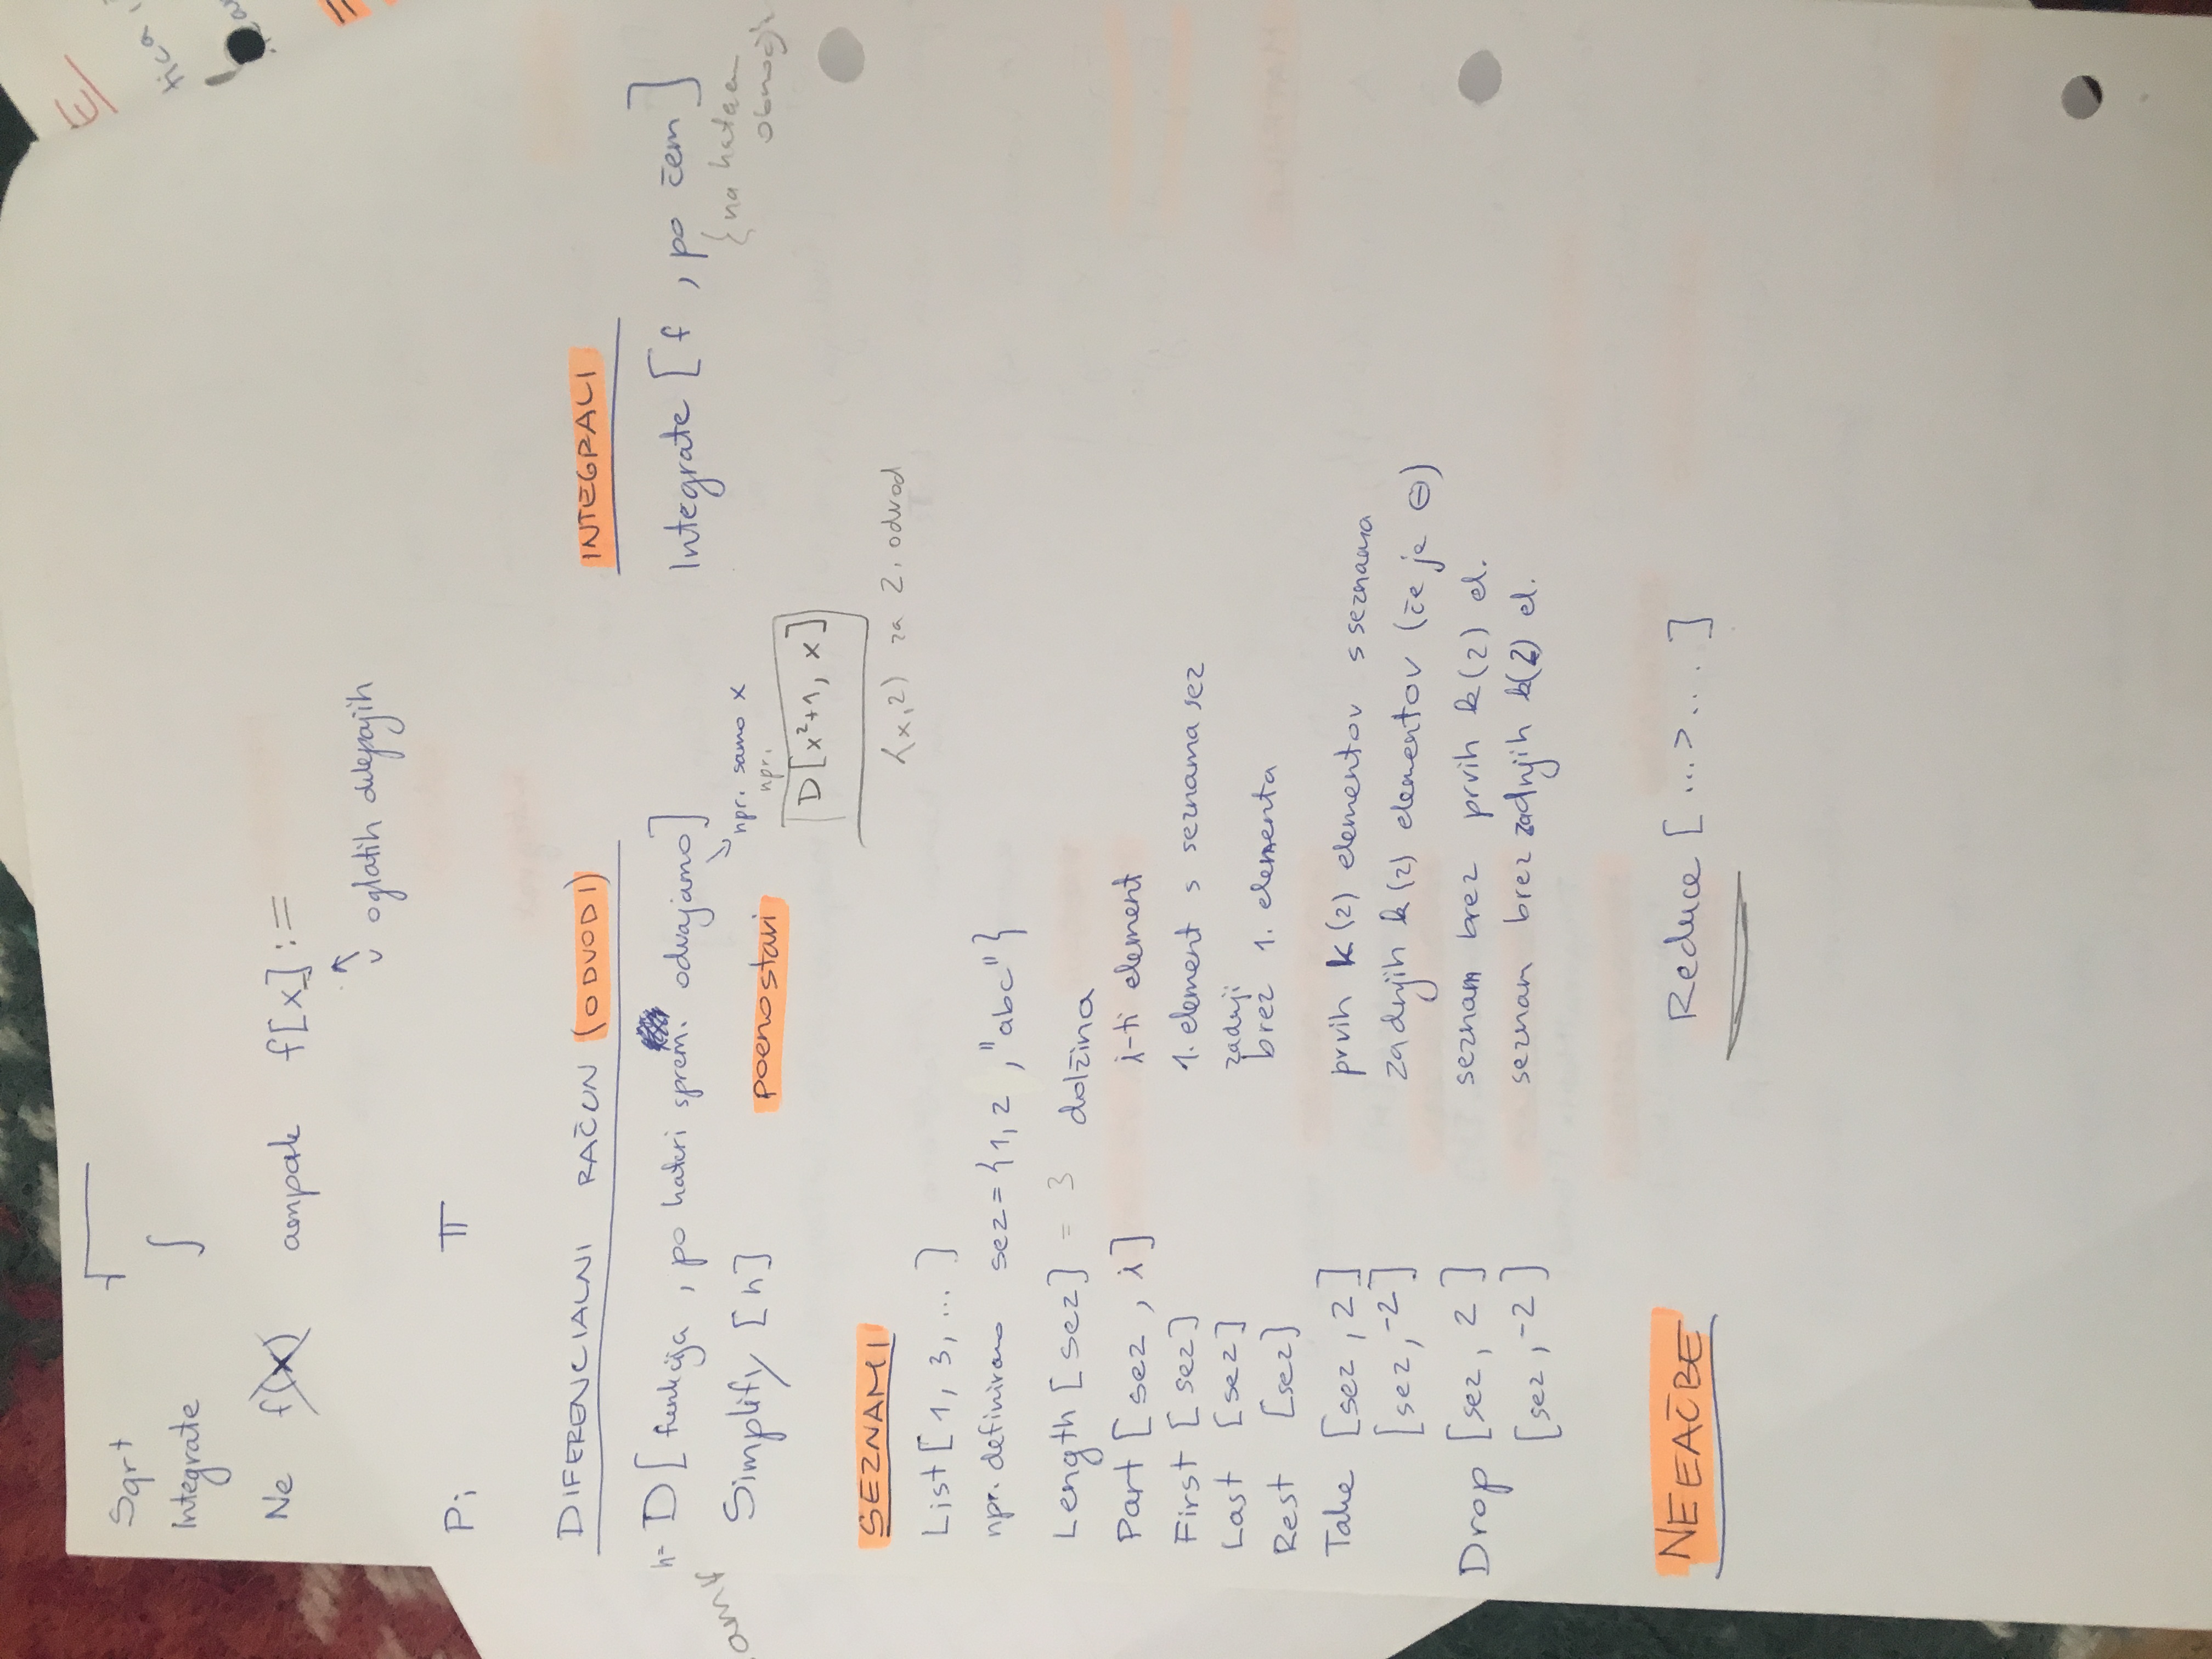 Sqrt √
Integrate ∫
Ne f(x) ampak f[x] :=
↑
v oglatih oklepajih
Pi π
DIFERENCIALNI RAČUN (ODVODI)
h= D[funkcija, po kateri sprem. odvajamo]
npr. samo x
Simplify [h] poenostavi
npr.
D[x²+1, x]
{x,2} za 2. odvod
INTEGRALI
Integrate [f, po čem]
{na katerem
območju
SEZNAMI
List[1, 3, ...]
npr. definiramo sez = {1, 2, "abc"}
Length [sez] = 3 dolžina
Part [sez, i] i-ti element
First [sez] 1. element s seznama sez
Last [sez] zadnji
Rest [sez] brez 1. elementa
Take [sez, 2] prvih k(2) elementov s seznama
[sez, -2] zadnjih k(2) elementov (če je ⊖)
Drop [sez, 2] seznam brez prvih k(2) el.
[sez, -2] seznam brez zadnjih k(2) el.
NEEAČBE Reduce [...>....]
E
tica,